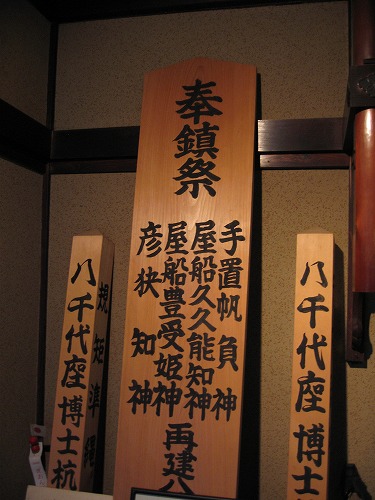 奉鎮祭
手置帆負神
屋船久久能知神
屋船豊受姫神
彦狭知神
再建
八千代座博士杭
規矩準縄
八千代座博士